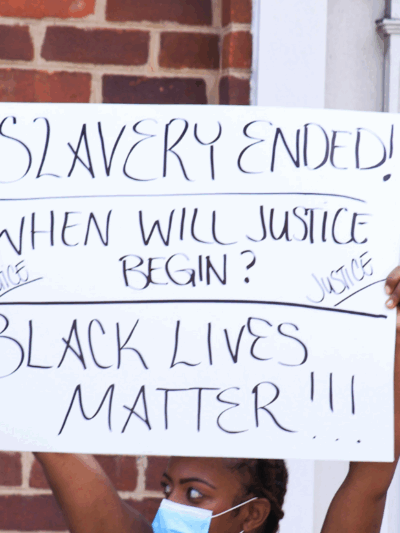 SLAVERY ENDED!
WHEN WILL JUSTICE
BEGIN?
JUSTICE
BLACK LIVES
MATTER!!!